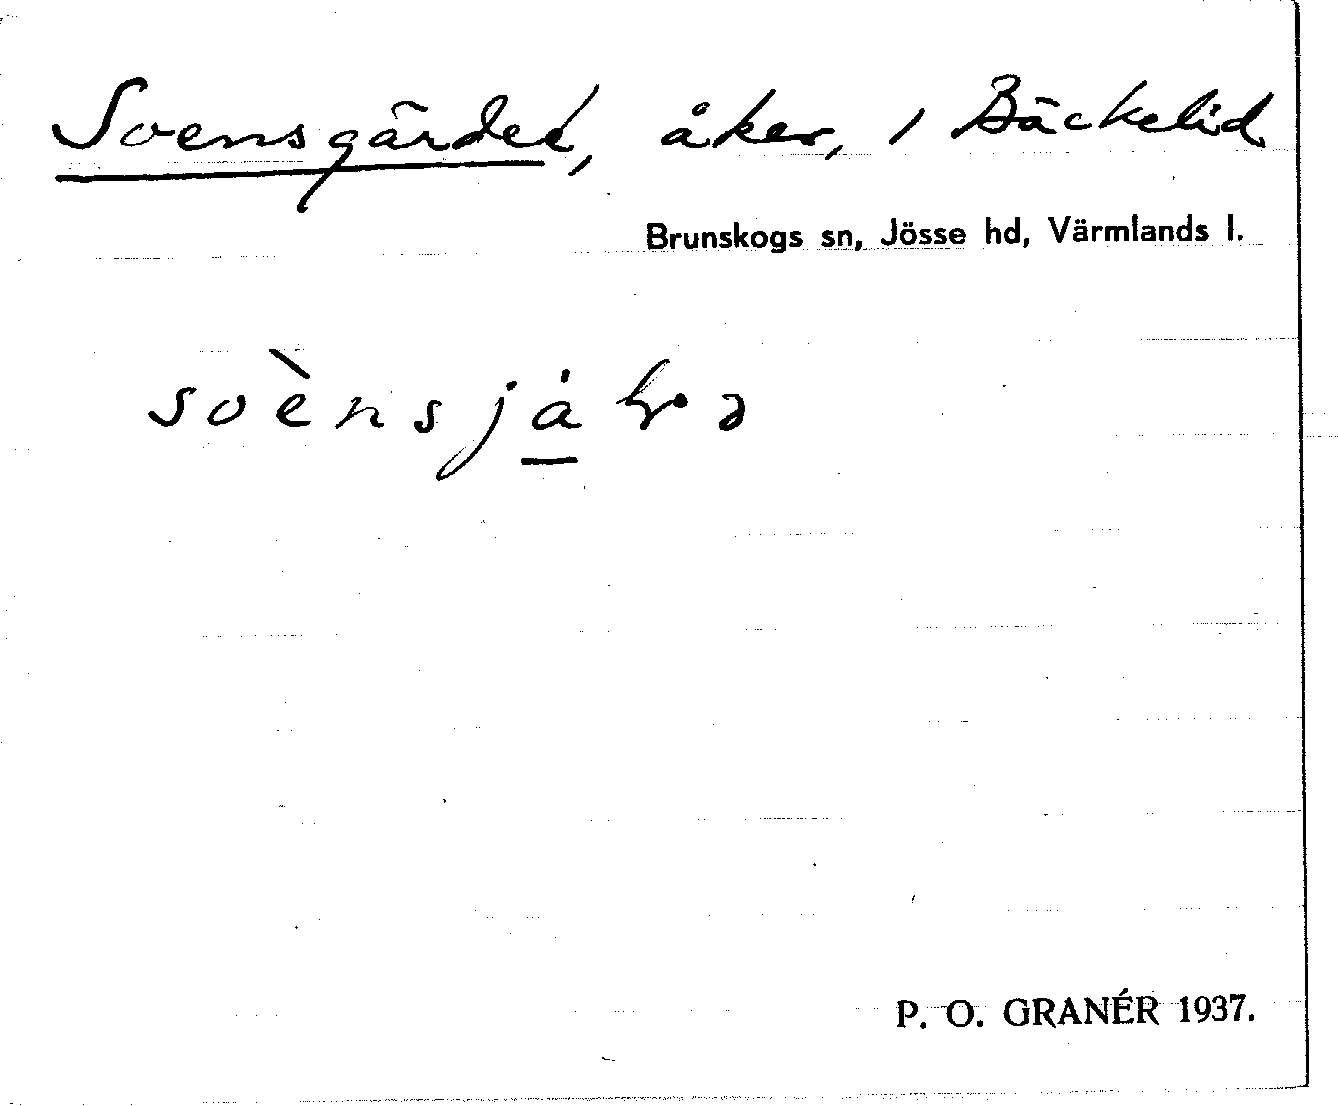 Svensgärdet, åker, i Bäckelid
Brunskogs sn, Jösse hd, Värmlands l.
P. O. GRANÉR 1937.